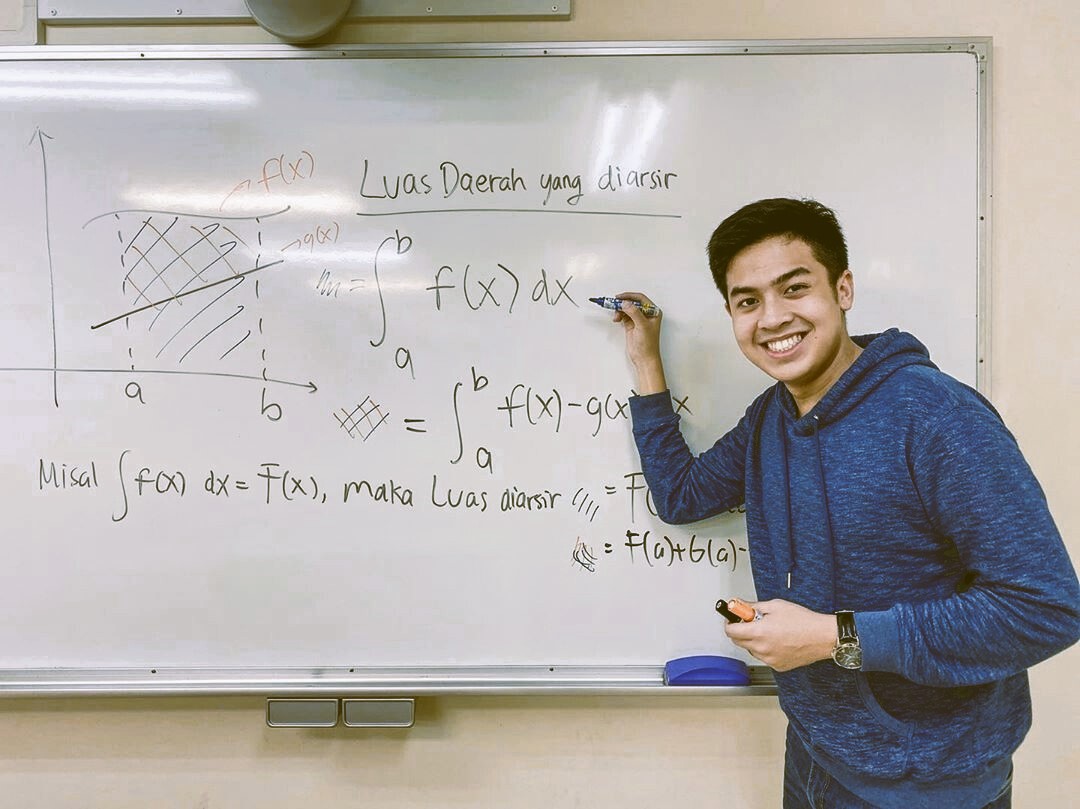 Luas Daerah yang diarsir
f(x)
g(x)
= ∫ₐᵇ f(x) dx
a
b
= ∫ₐᵇ f(x)-g(x) x
Misal ∫f(x) dx = F(x), maka Luas diarsir //// = F(
= F(a)+G(a)-